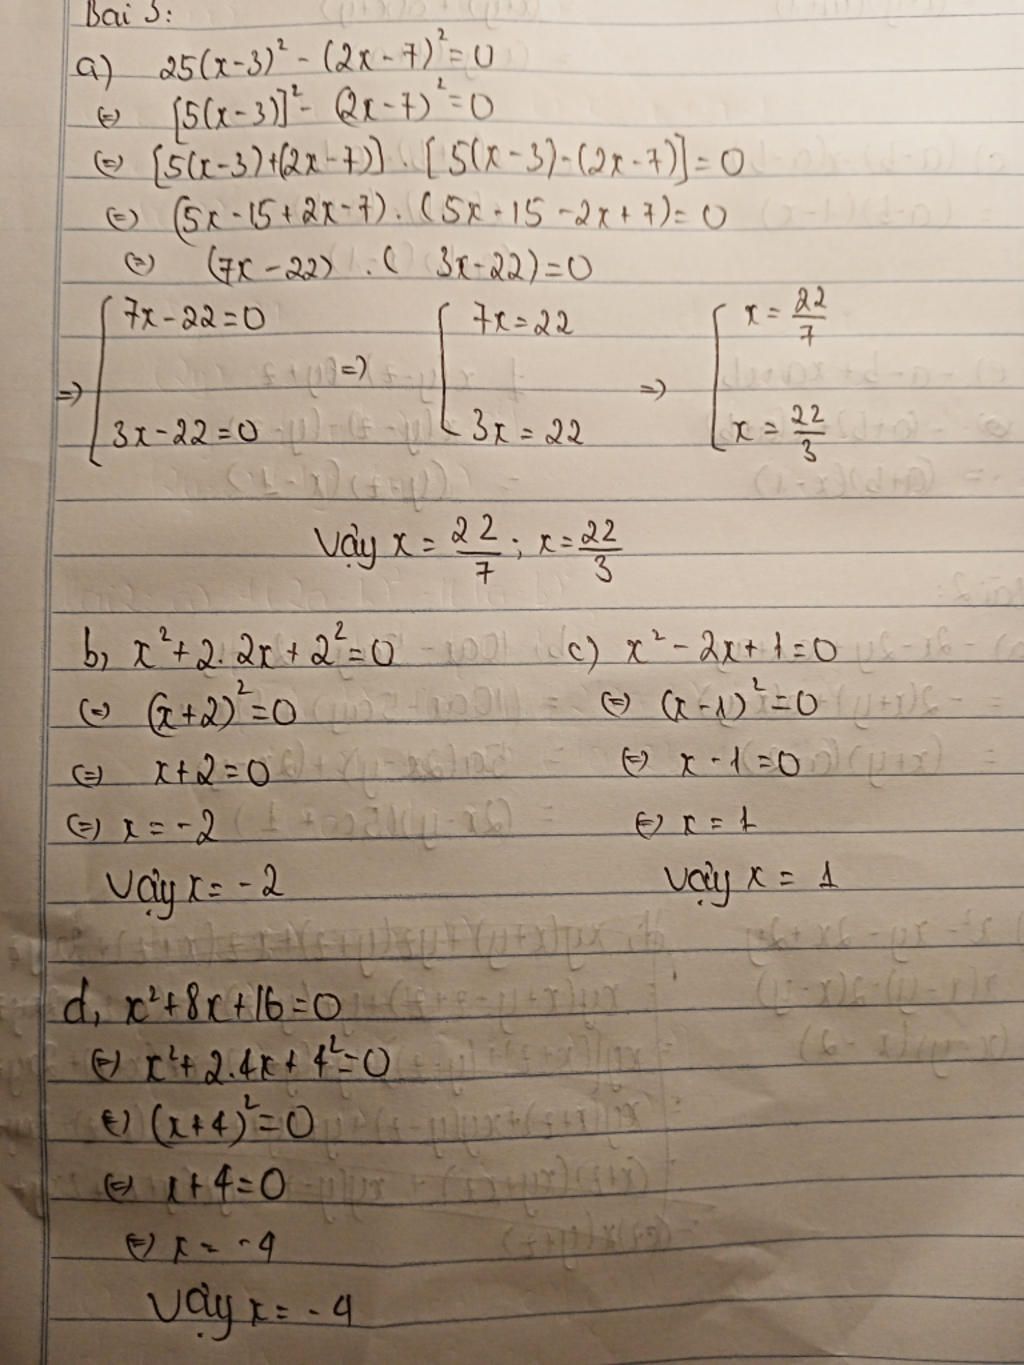 Bài 3:
a) 25(x-3)² - (2x-7)² = 0
(=) [5(x-3)]² - (2x-7)² = 0
(=) [5(x-3)+(2x-7)] . [5(x-3)-(2x-7)] = 0
(=) (5x-15+2x-7) . (5x-15-2x+7) = 0
(=) (7x-22) . ( 3x-22) = 0
=> [ 7x-22=0 => [ 7x=22 => [ x = 22/7
3x-22=0 3x = 22 x = 22/3
Vậy x = 22/7 ; x = 22/3
b, x² + 2. 2x + 2² = 0
(=) (x+2)² = 0
(=) x+2=0
(=) x = -2
Vậy x = -2
c) x² - 2x + 1 = 0
(=) (x-1)² = 0
(=) x-1=0
(=) x = 1
Vậy x = 1
d, x²+8x+16=0
(=) x²+2.4x+4²=0
(=) (x+4)²=0
(=) x+4=0
(=) x = -4
Vậy x = -4